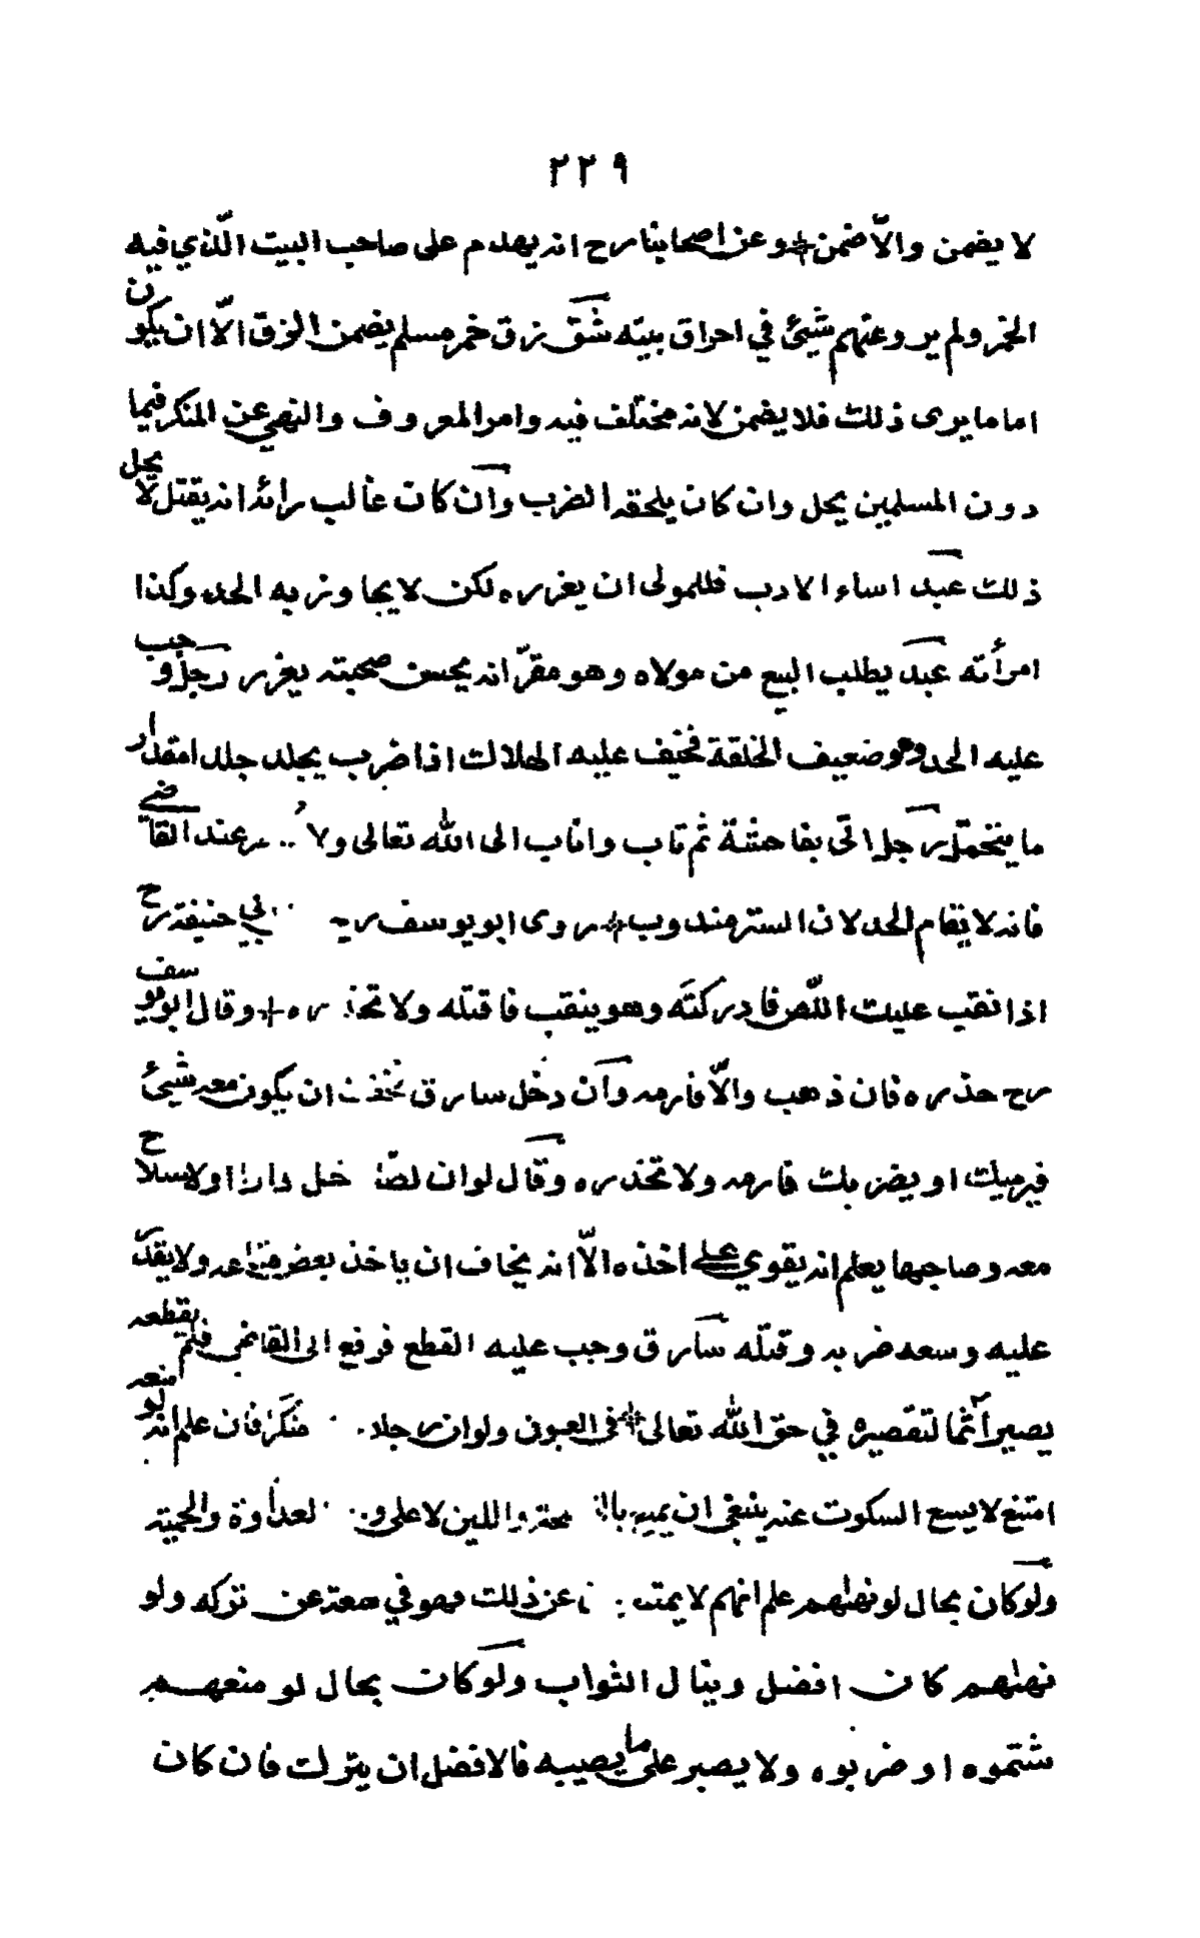 ٢٢٩
لا يضمن والّا ضمن وعن اصحابنا رح انه يهدم على صاحب البيت الّذي فيه
الخمر ولم يرو عنهم شيئ في احراق بيته شق زق خمر مسلم يضمن الزق الّا ان يكون
اماما يرى ذلك فلا يضمن لانه مختلف فيه وامر المعروف والنهي عن المنكر فيما
دون المسلمين يحل وان كان يلحقه الضرب وان كان غالب رائه انه يقتل لا يحل
ذلك عبد اساء الادب فللمولى ان يعزره لكن لا يجاوز به الحد وكذا
امرأته عبد يطلب البيع من مولاه وهو مقرّ انه يحسن صحبته يعزر رجل وجب
عليه الحد وهو ضعيف الخلقة فخيف عليه الهلاك اذا ضرب يجلد جلدا مقدار
ما يتحمل رجل اتى بفاحشة ثم تاب واناب الى الله تعالى ولا عند القاضي
فانه لا يقام الحد لان الستر مندوب روى ابو يوسف رح حنيفة رح
اذا نقب عليك اللّص فادركته وهو ينقب فاقتله ولا تحذره وقال ابو يوسف
رح حذره فان ذهب والّا فارمه وان دخل سارق تخفت ان يكون معه شيئ
فيرميك او يضربك فارمه ولا تحذره وقال لو ان لصّا دخل دارا ولا سلاح
معه وصاحبها يعلم انه يقوي على اخذه الّا انه يخاف ان ياخذ بعض متاعه ولا يقدر
عليه وسعه ضربه وقتله سارق وجب عليه القطع فرفع الى القاضي فلم يقطعه
يصير آثما لتقصيره في حق الله تعالى في العيون ولو ان رجلا منكر فان علم انه لو منعه
امتنع لا يسع السكوت عنه ينبغي ان واللين لا على لعداوة والحمية
ولو كان بحال لو نهاهم علم انهم لا عن ذلك فهو في سعة عن تركه ولو
نهاهم كان افضل وينال الثواب ولو كان بحال لو منعهم
شتموه او ضربوه ولا يصبر على ما يصيبه فالافضل ان يترك فان كان